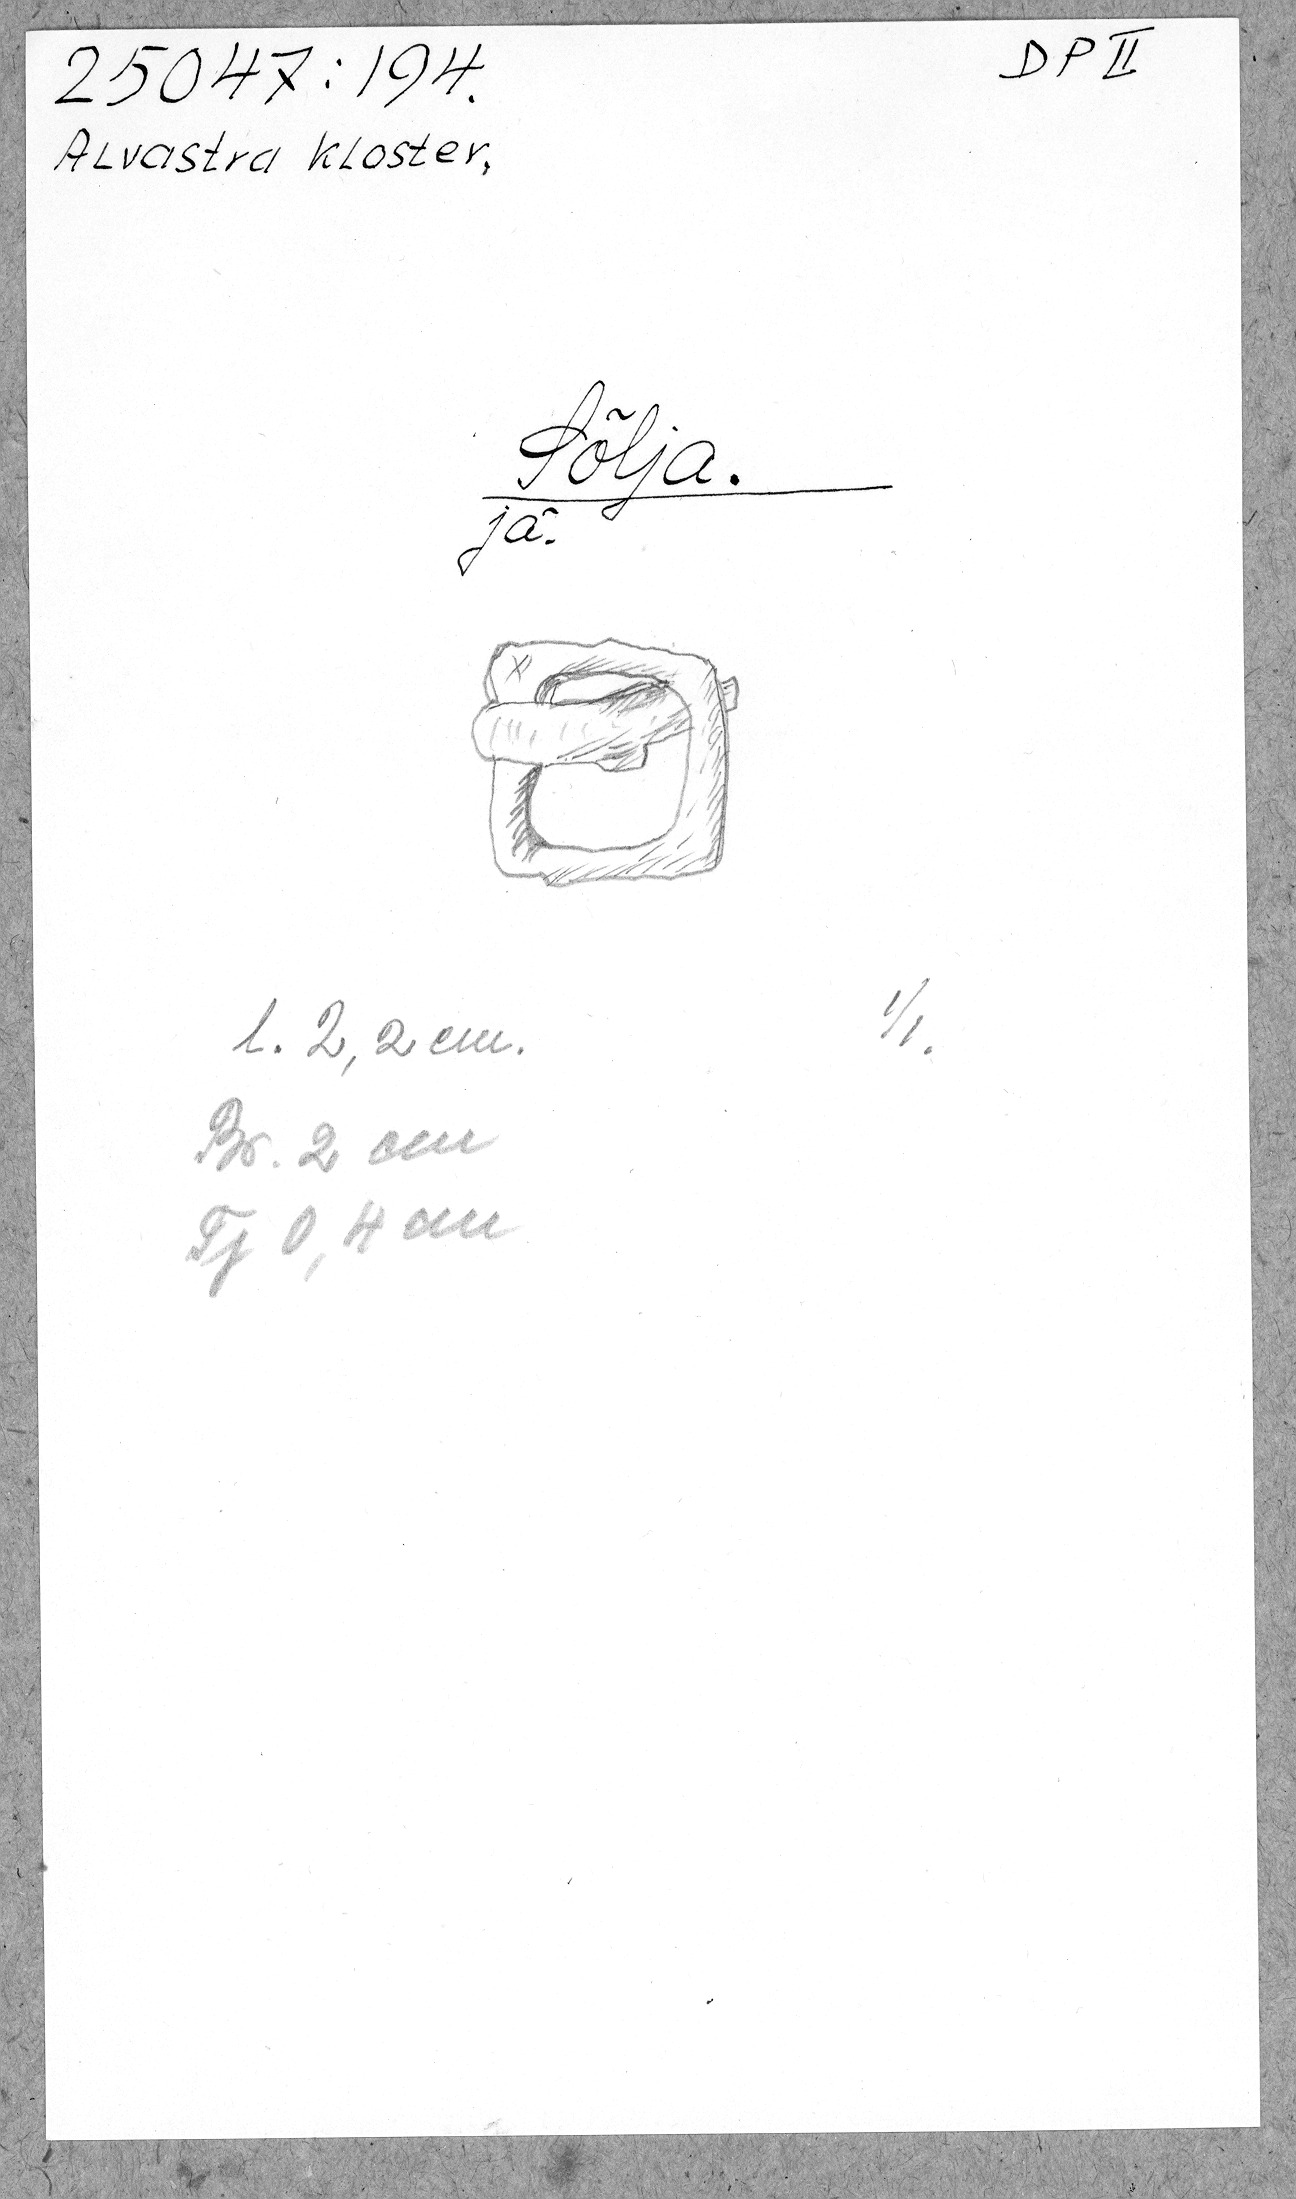 25047:194.
DP II
Alvastra kloster.
Sölja.
jä.
l. 2,2 cm.
1/1.
Br. 2 cm
Tj 0,4 cm